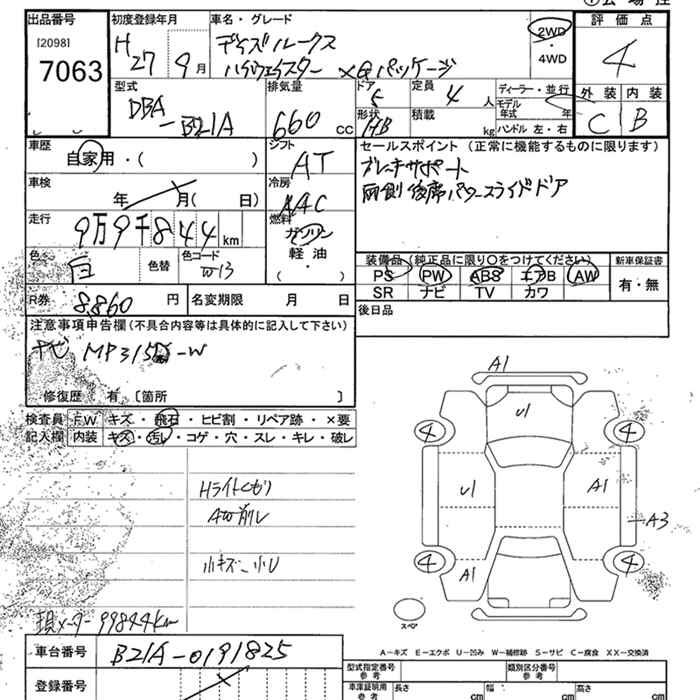 出品番号
[2098]
7063
初度登録年月
H27 9月
車名・グレード
デイズルークス
ハイウェイスター XGパッケージ
2WD
・
4WD
評価点
4
外装 内装
C B
型式
DBA
-B21A
排気量
660 cc
ドア
5
定員
4 人
形状
HB
積載
kg
ディーラー・並行
モデル
年式 年
ハンドル 左・右
車歴
自家用・( )
シフト
AT
セールスポイント (正常に機能するものに限ります)
ブレーキサポート
両側後席パワースライドドア
車検
年 月( 日)
冷房
AAC
走行
9万9千844km
燃料
ガソリン
・
軽油
・
( )
色
白
色替
色コード
W13
装備品(純正品に限り○をつけてください)
PS PW ABS エアB AW
SR ナビ TV カワ
新車保証書
有・無
R券
8,860 円
名変期限 月 日
後日品
注意事項申告欄(不具合内容等は具体的に記入して下さい)
ナビ MP315-W
修復歴 有 〔箇所 〕
検査員 FW キズ・飛石・ヒビ割・リペア跡・×要
記入欄 内装 キズ・汚レ・コゲ・穴・スレ・キレ・破レ
Hライトくもり
AW削レ
小キズ、小U
現メーター99844km
A1
U1
4 4
U1
A1
A3
4 4
A1
スペア
A-キズ E-エクボ U-凹み W-補修跡 S-サビ C-腐食 XX-交換済
車台番号
B21A-0191825
登録番号
型式指定番号
参考
類別区分番号
参考
車庫証明用
参考
長さ cm
幅 cm
高さ cm